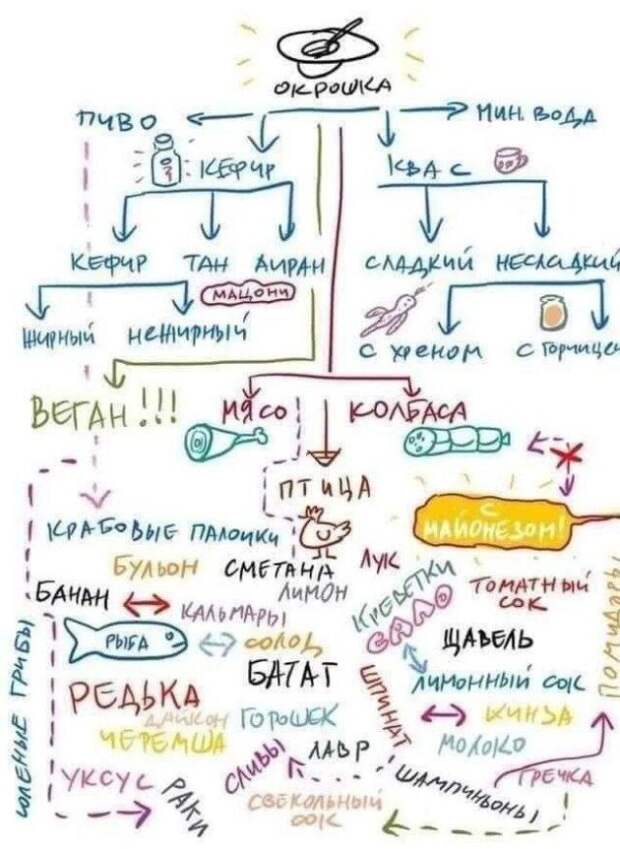 ОКРОШКА
ПИВО
МИН. ВОДА
КЕФИР
КВАС
КЕФИР
ТАН
АИРАН
СЛАДКИЙ
НЕСЛАДКИЙ
МАЦОНИ
ЖИРНЫЙ
НЕЖИРНЫЙ
С ХРЕНОМ
С ГОРЧИЦЕЙ
ВЕГАН!!!
МЯСО
КОЛБАСА
ПТИЦА
С
МАЙОНЕЗОМ!
КРАБОВЫЕ ПАЛОЧКИ
БУЛЬОН
СМЕТАНА
ЛУК
БАНАН
КАЛЬМАРЫ
ЛИМОН
КРЕВЕТКИ
ТОМАТНЫЙ
СОК
САЛО
РЫБА
СОЛОД
ЩАВЕЛЬ
ПОМИДАРЫ
БАТАТ
ШПИНАТ
ЛИМОННЫЙ СОК
РЕДЬКА
ДАЙКОН
ГОРОШЕК
КИНЗА
ЧЕРЕМША
ЛАВР
МОЛОКО
СОЛЕНЫЕ ГРИБЫ
УКСУС
РАКИ
СЛИВЫ
ШАМПИНЬОНЫ
ГРЕЧКА
СВЕКОЛЬНЫЙ
СОК